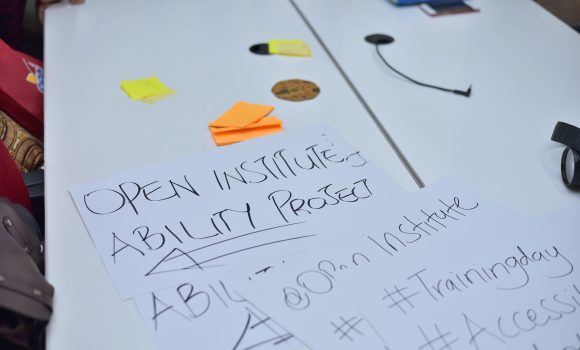 OPEN INSTITUTE,
ABILITY PROJECT
ABIL
@Open Institute
#Trainingday
#
#Accessi